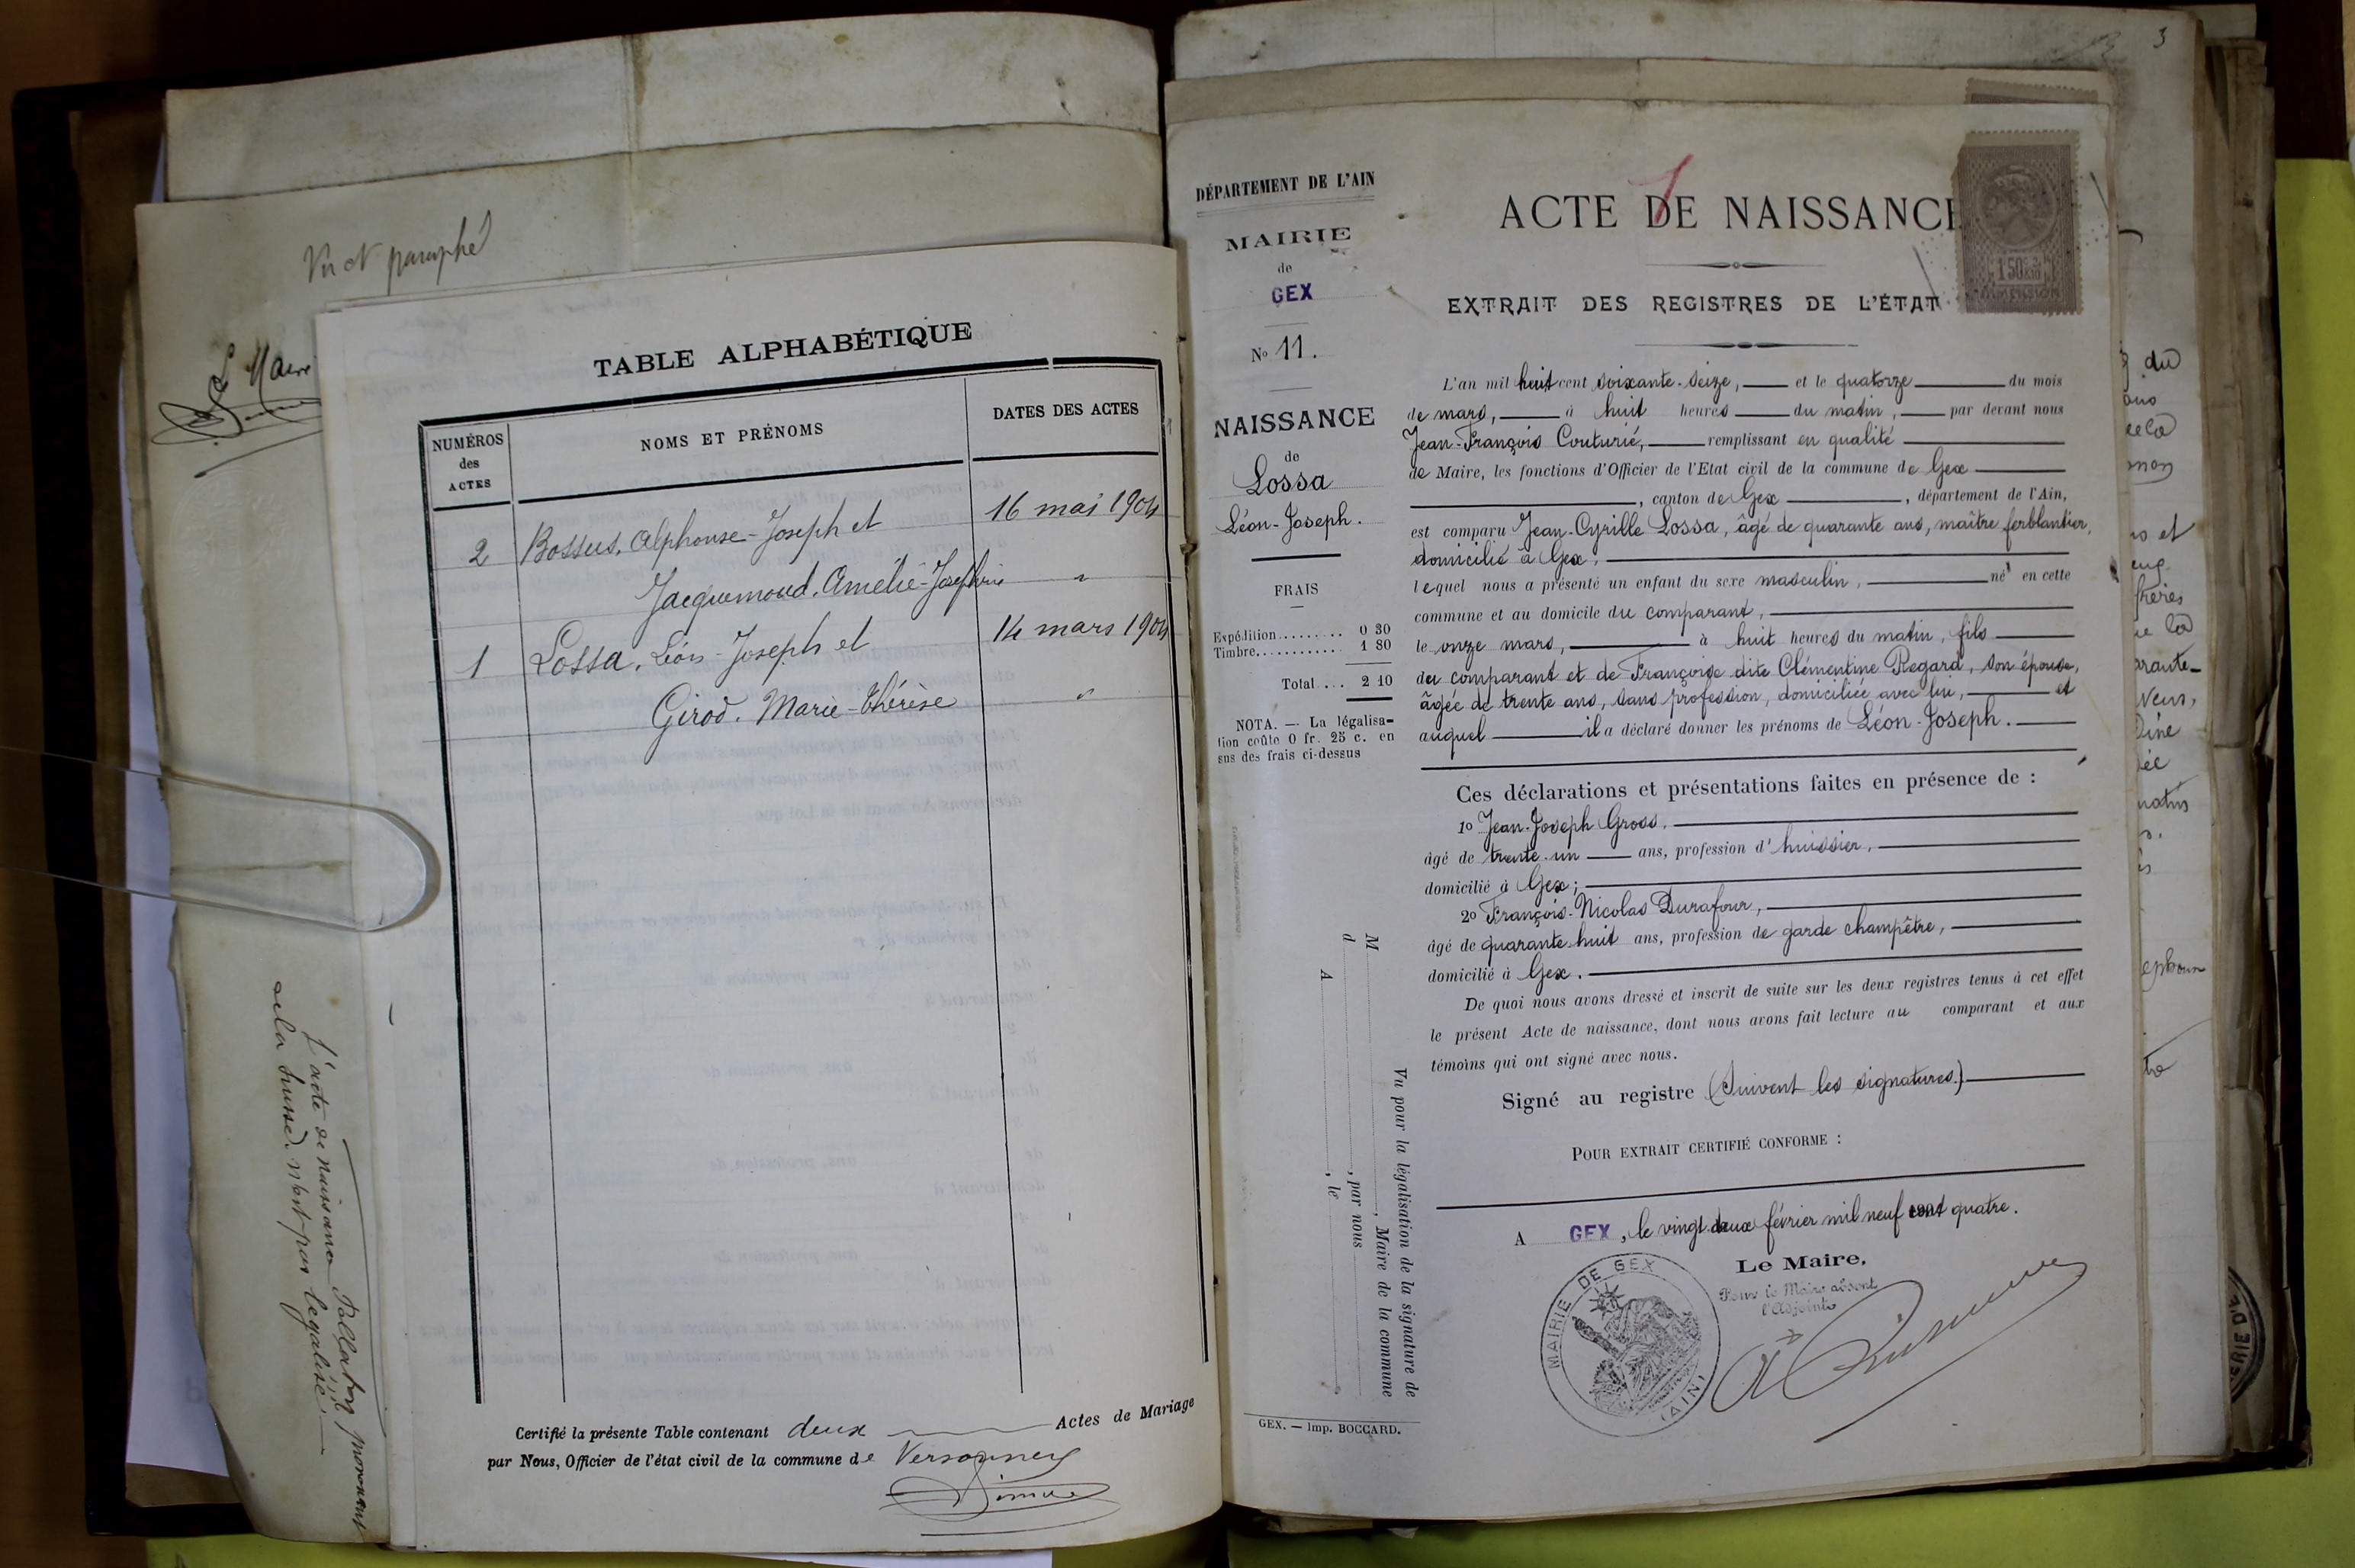 Vu et paraphé
Le Maire
TABLE ALPHABÉTIQUE
NUMÉROS des ACTES
NOMS ET PRÉNOMS
DATES DES ACTES
2 Bossus, Alphonse-Joseph et 16 mai 1904
Jacquemoud. Amélie-Joséphine "
1 Lossa, Léon-Joseph et 14 mars 1904
Girod. Marie-Thérèse "
Certifié la présente Table contenant deux Actes de Mariage
par Nous, Officier de l'état civil de la commune de Versonnex
L'acte de naissance
de la Suisse n'est pas légalisé.
3
DÉPARTEMENT DE L'AIN
MAIRIE
de
GEX
No 11.
NAISSANCE
de
Lossa
Léon-Joseph.
FRAIS
Expédition......... 0 30
Timbre............ 1 80
Total ... 2 10
NOTA. — La légalisa-
tion coûte 0 fr. 25 c. en
sus des frais ci-dessus
Vu pour la légalisation de la signature de
M , Maire de la commune
d , par nous
A , le
GEX. — Imp. BOCCARD.
1
ACTE DE NAISSANCE
EXTRAIT DES REGISTRES DE L'ÉTAT
L'an mil huit cent soixante-seize, et le quatorze du mois
de mars, à huit heures du matin, par devant nous
Jean-François Couturié, remplissant en qualité
de Maire, les fonctions d'Officier de l'Etat civil de la commune de Gex
, canton de Gex , département de l'Ain,
est comparu Jean-Cyrille Lossa, âgé de quarante ans, maître ferblantier,
domicilié à Gex,
lequel nous a présenté un enfant du sexe masculin, né en cette
commune et au domicile du comparant,
le onze mars, à huit heures du matin, fils
du comparant et de Françoise dite Clémentine Regard, son épouse,
âgée de trente ans, sans profession, domiciliée avec lui, et
auquel il a déclaré donner les prénoms de Léon-Joseph.
Ces déclarations et présentations faites en présence de :
1o Jean-Joseph Gross,
âgé de trente-un ans, profession d'huissier,
domicilié à Gex;
2o François-Nicolas Durafour,
âgé de quarante-huit ans, profession de garde champêtre,
domicilié à Gex.
De quoi nous avons dressé et inscrit de suite sur les deux registres tenus à cet effet
le présent Acte de naissance, dont nous avons fait lecture au comparant et aux
témoins qui ont signé avec nous.
Signé au registre (Suivent les signatures.)
POUR EXTRAIT CERTIFIÉ CONFORME :
A GEX, le vingt deux février mil neuf cent quatre.
Le Maire,
Pour le Maire absent
l'Adjoint
MAIRIE DE GEX (AIN)